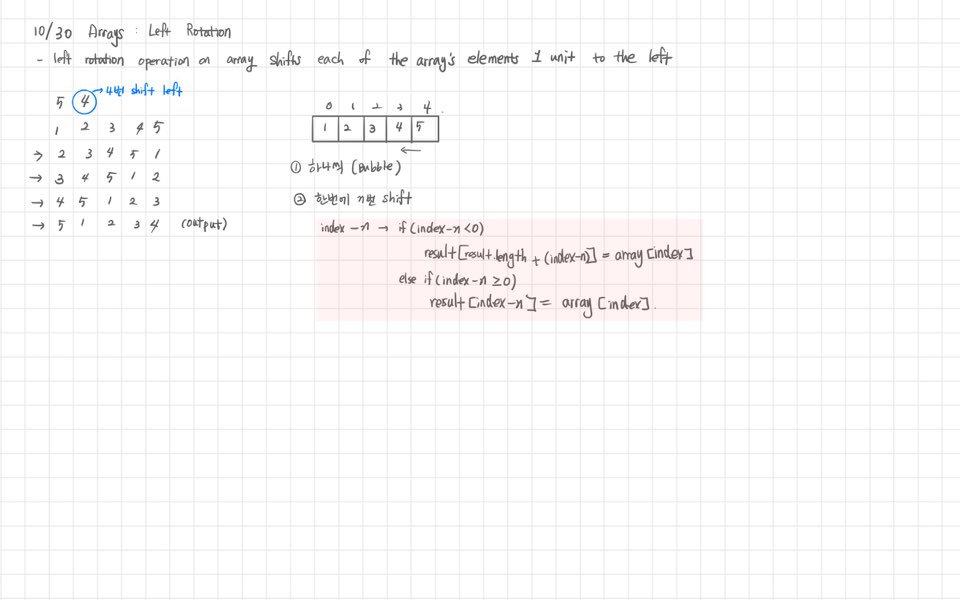 10/30 Arrays : Left Rotation
- left rotation operation on array shifts each of the array's elements 1 unit to the left
5 4 → 4번 shift left
1 2 3 4 5
→ 2 3 4 5 1
→ 3 4 5 1 2
→ 4 5 1 2 3
→ 5 1 2 3 4 (output)
0 1 2 3 4
1 2 3 4 5
←
① 하나씩 (Bubble)
② 한번에 n번 shift
index - n → if (index-n <0)
result[result.length + (index-n)] = array[index]
else if (index-n ≥0)
result[index-n] = array[index].